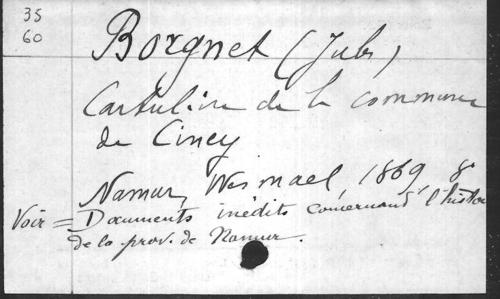 35
60
Borgnet (Jules)
Cartulaire de la commune
de Ciney
Namur, Wesmael, 1869, 8°
Voir = Documents inédits concernant l'histoi
de la prov. de Namur.